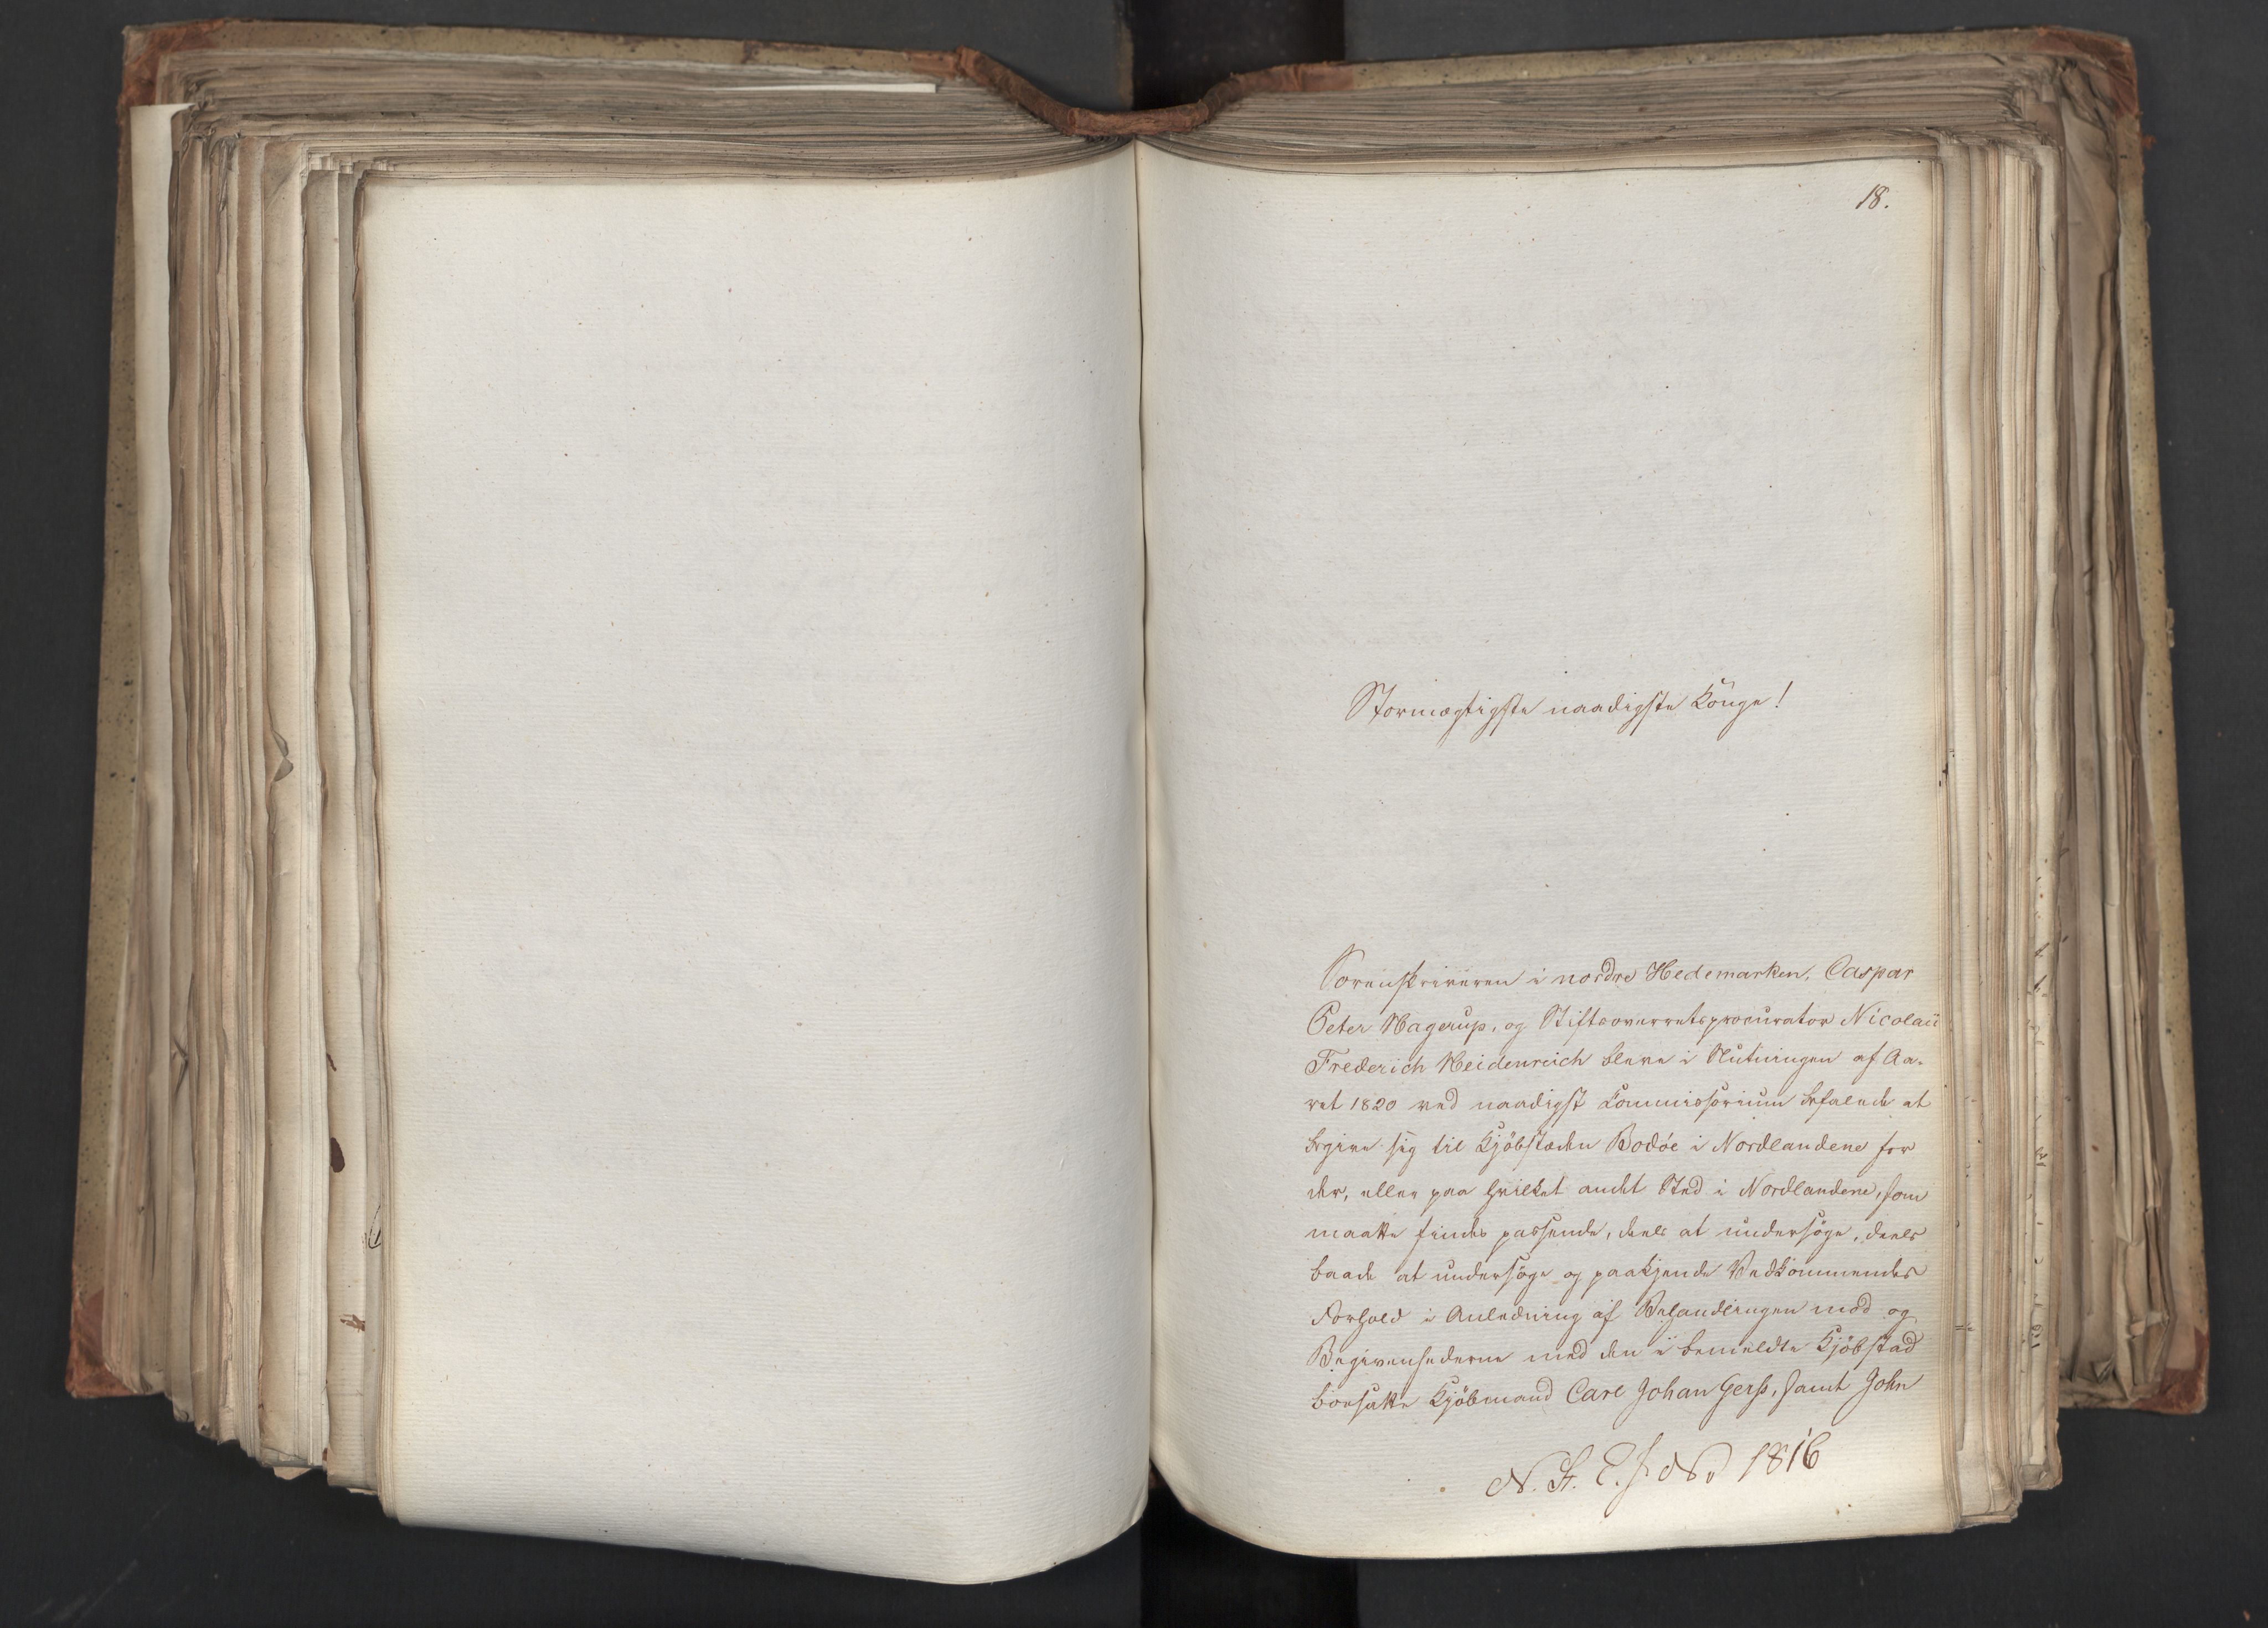 18.
Stormægtigste naadigste Konge!
Sorenskriveren i nordre Hedemarken, Caspar
Peter Hagerup, og Stiftsoverretsprocurator Nicolaii
Frederich Heidenreich bleve i Slutningen af Aa-
ret 1820 ved naadigst Commissorium befalede at
begive sig til Kjöbstæden Bodøe i Nordlandene for
der, eller paa hvilket andet Sted i Nordlandene, som
maatte findes passende, deels at undersöge, deels
baade at undersöge og paakjende Vedkommendes
Forhold i Anledning af Behandlingen mod og
Begivenhederne med den i bemeldte Kjöbstad
bosatte Kjöbmand Carl Johan Gerss, samt John
N. 1816